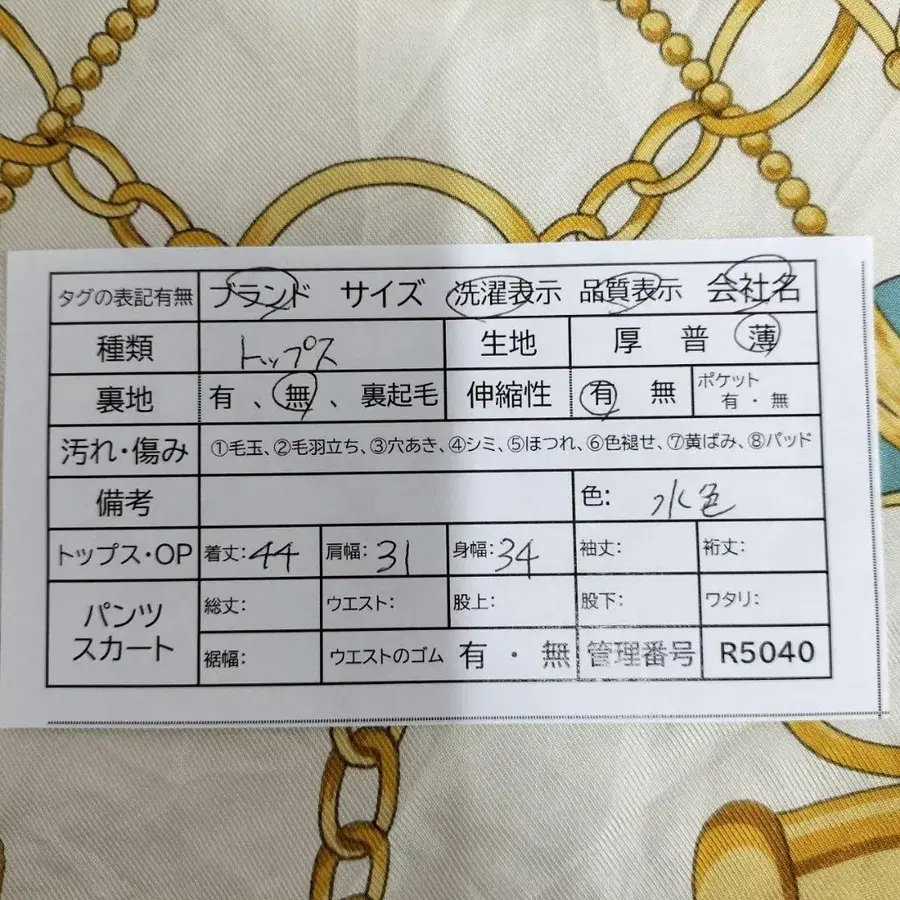 タグの表記有無 ブランド サイズ 洗濯表示 品質表示 会社名
種類 トップス 生地 厚 普 薄
裏地 有 、無 、裏起毛 伸縮性 有 無 ポケット 有・無
汚れ・傷み ①毛玉、②毛羽立ち、③穴あき、④シミ、⑤ほつれ、⑥色褪せ、⑦黄ばみ、⑧パッド
備考 色: 水色
トップス・OP 着丈:44 肩幅:31 身幅:34 袖丈: 裄丈:
パンツ スカート 総丈: ウエスト: 股上: 股下: ワタリ:
裾幅: ウエストのゴム 有・無 管理番号 R5040